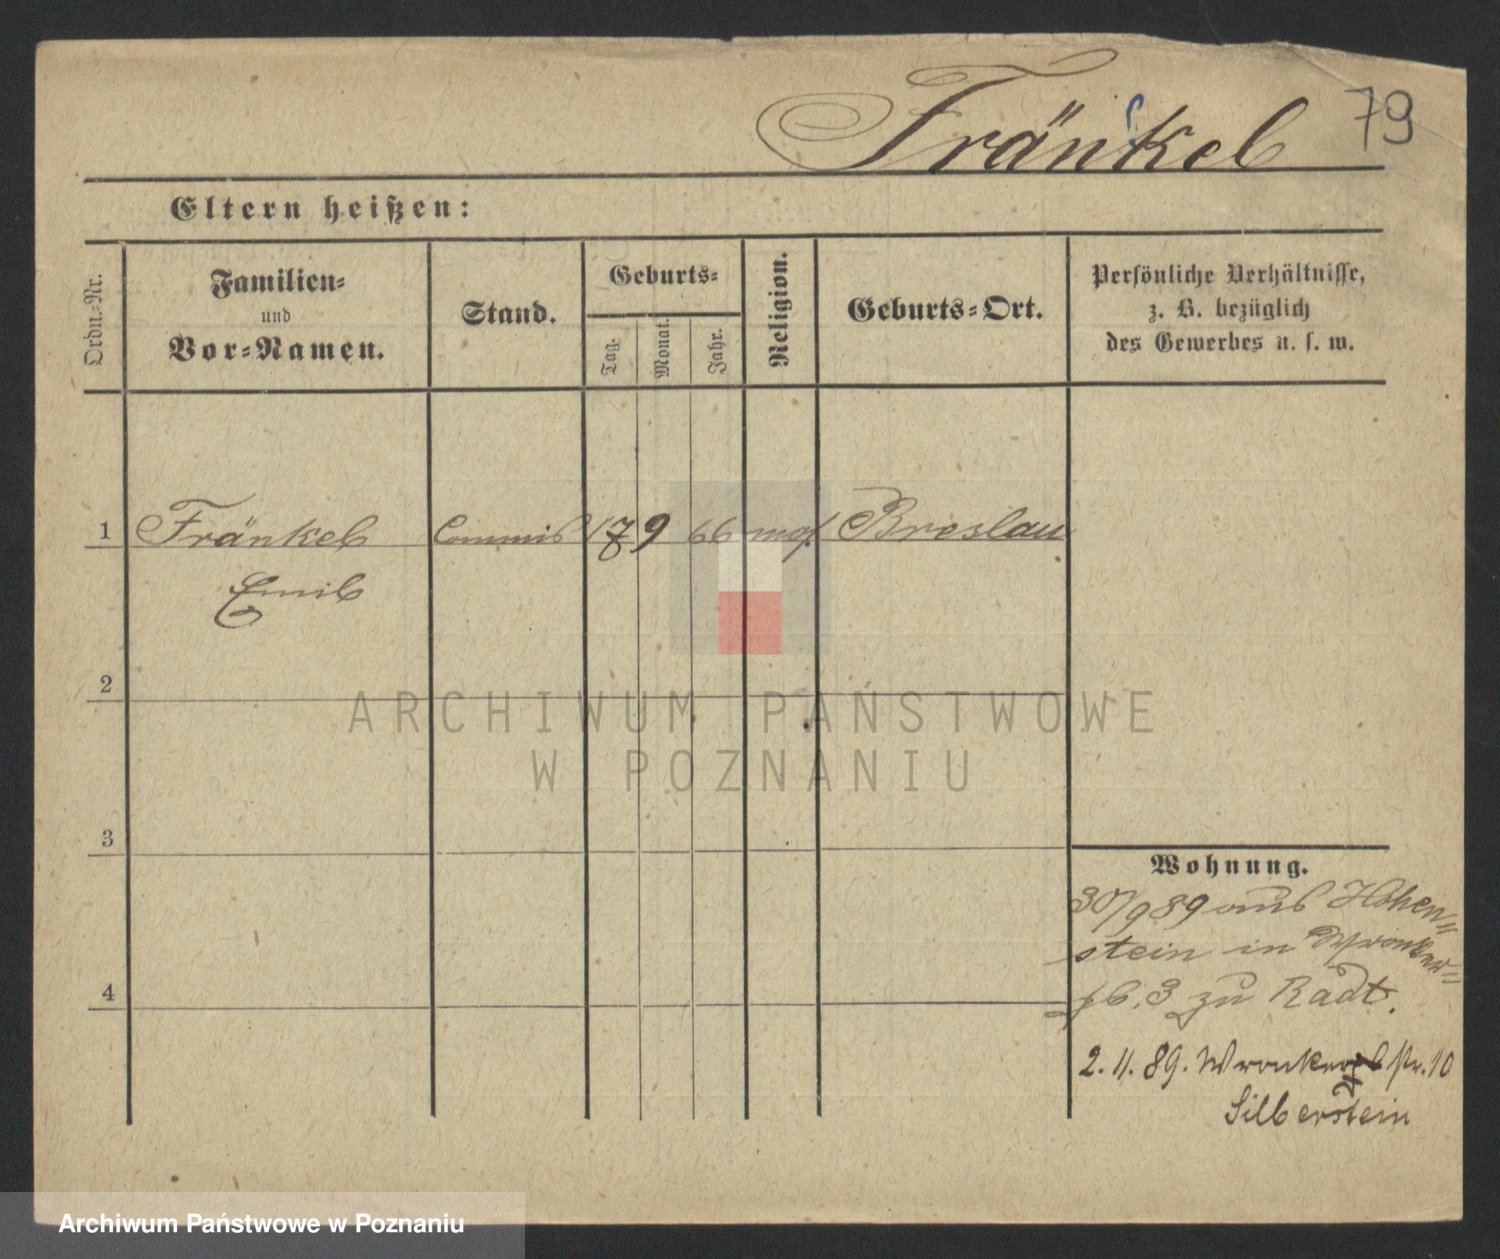 Fränkel 79
Eltern heißen:
Ordn.-Nr.
Familien-
und
Vor-Namen.
Stand.
Geburts-
Tag.
Monat.
Jahr.
Religion.
Geburts-Ort.
Persönliche Verhältnisse,
z. B. bezüglich
des Gewerbes u. s. w.
1 Fränkel Commis 17 9 66 mos. Breslau
Emil
2
3
4
Wohnung.
30/9 89 aus Hohen-
stein in Wronker-
pl. 3 zu Radt.
2. 11. 89. Wronkerstr. 10
Silberstein
ARCHIWUM PAŃSTWOWE
W POZNANIU
Archiwum Państwowe w Poznaniu